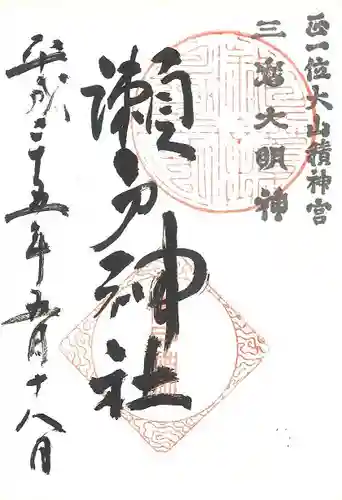 正一位大山積神宮
三島大明神
瀬戸神社
平成二十五年五月十八日